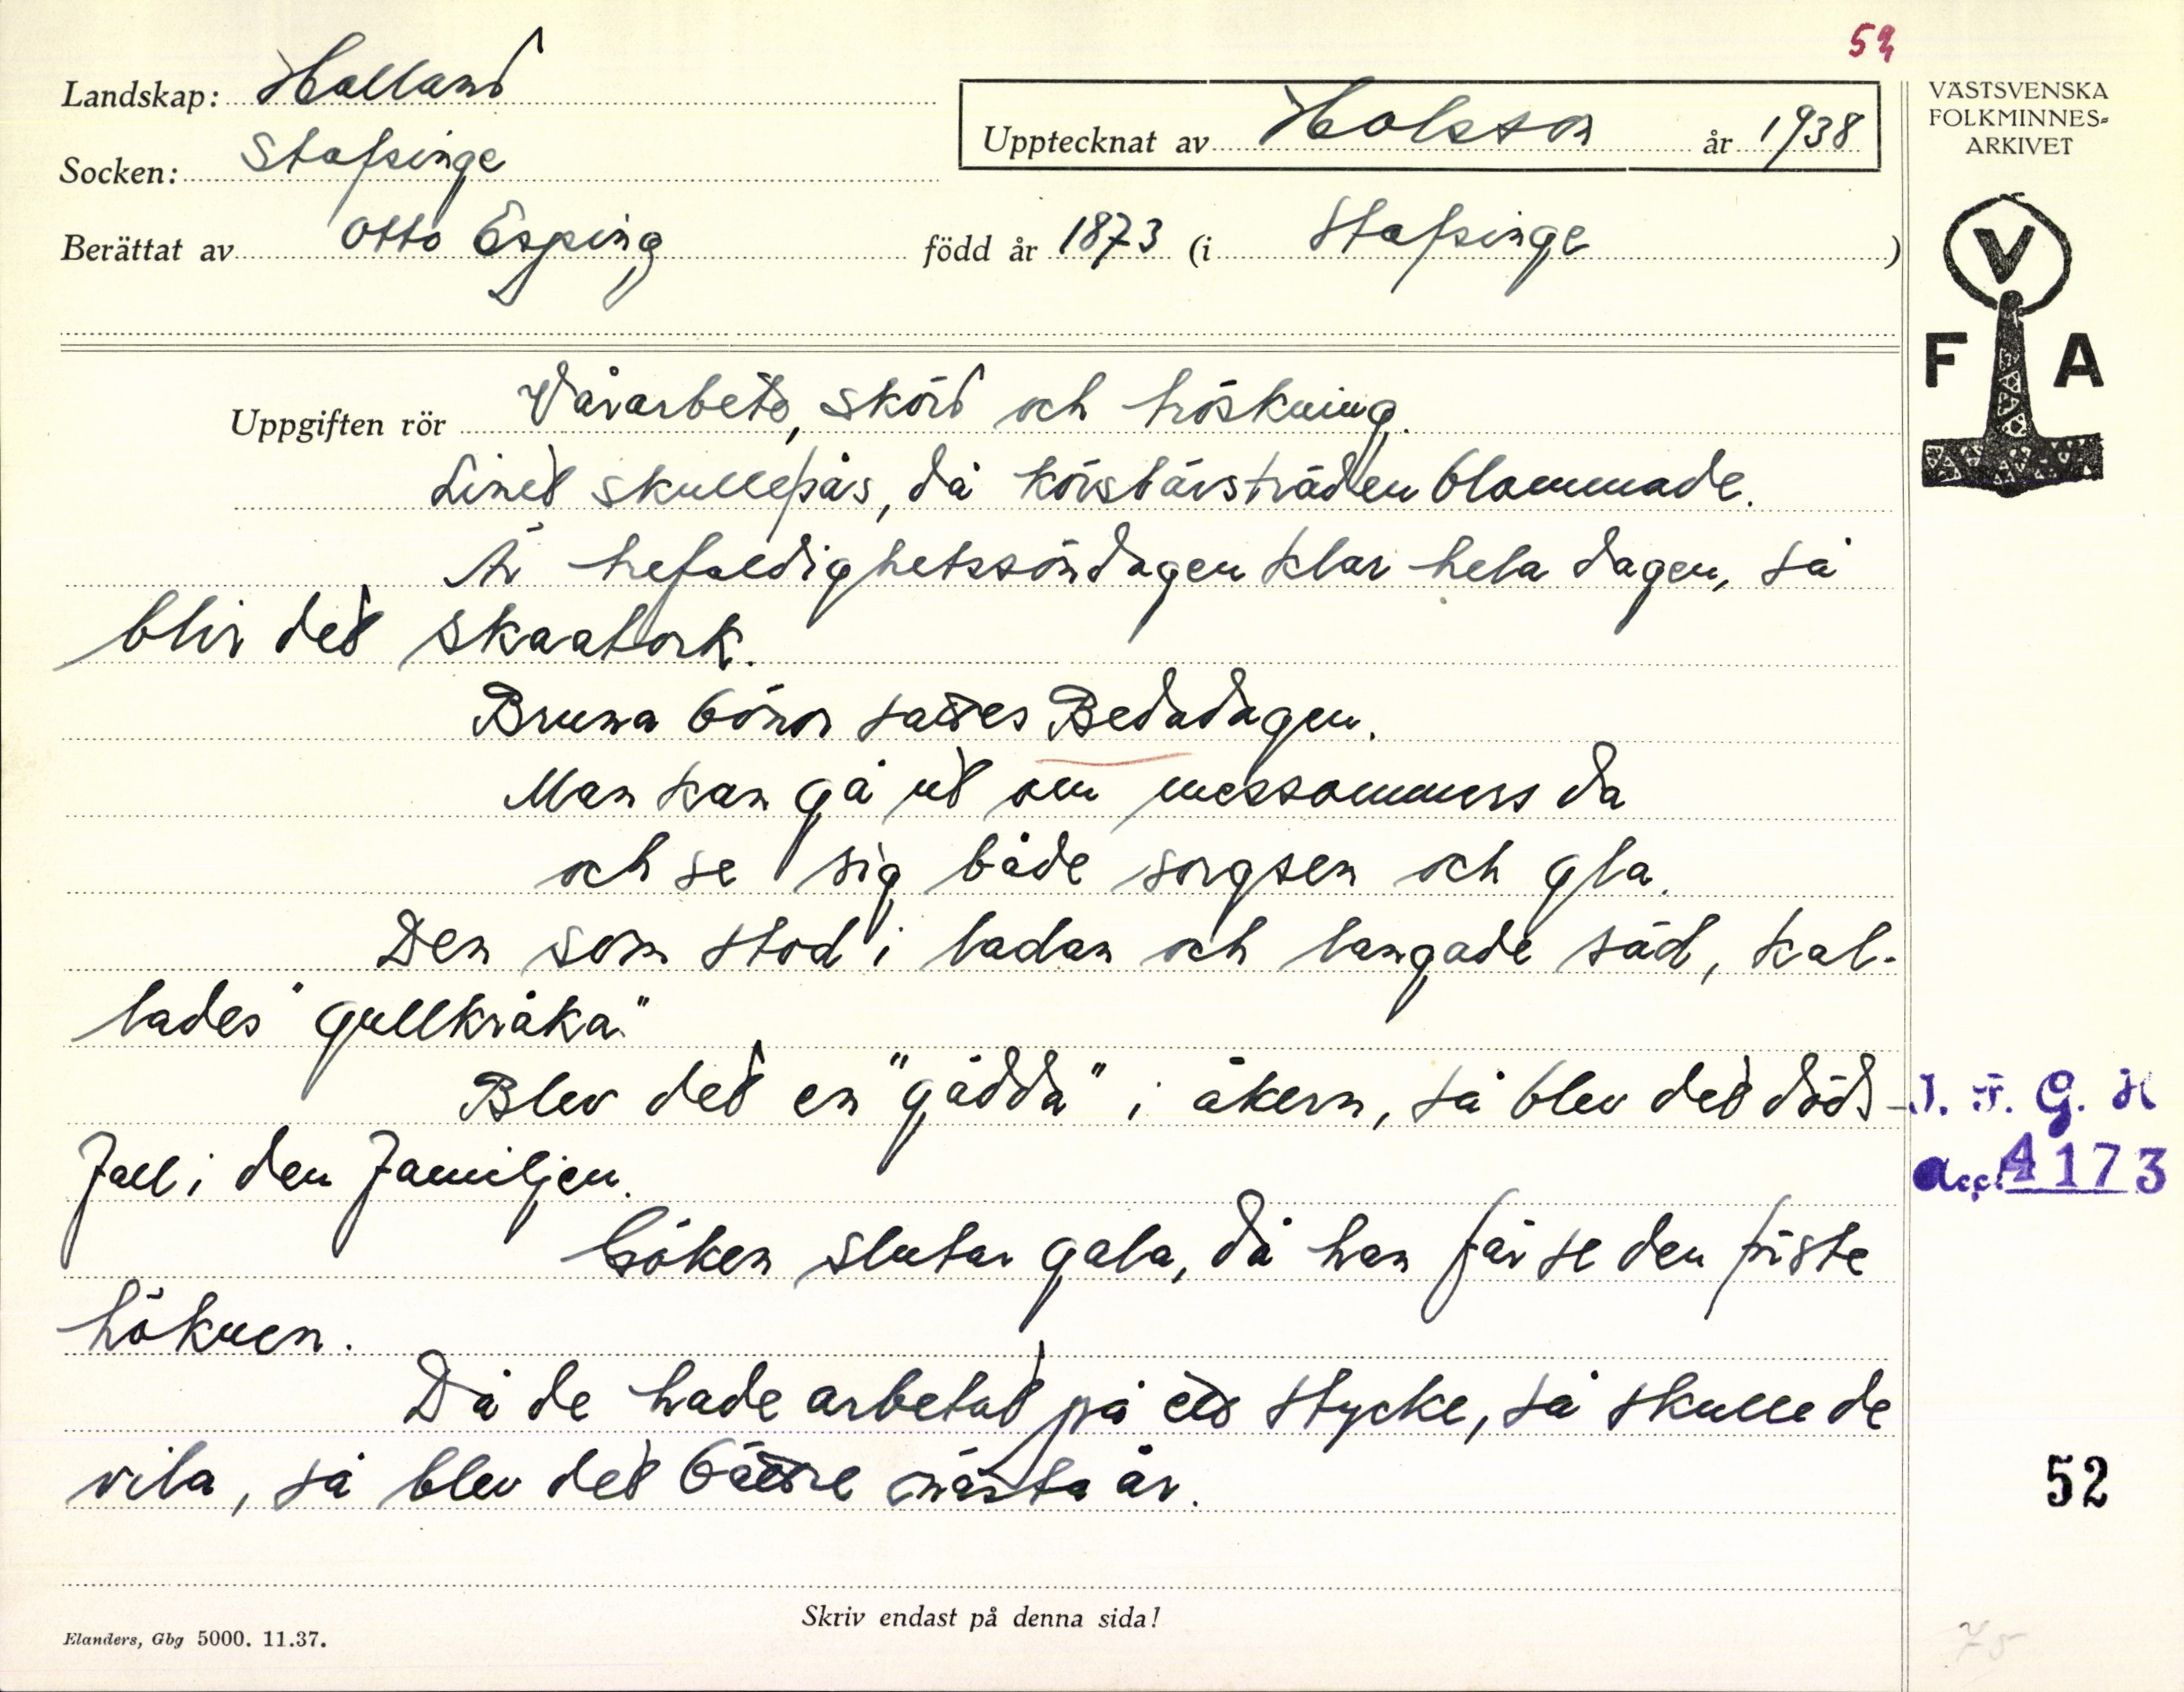 54
Landskap: Halland
Socken: Stafsinge
Upptecknat av Holsson år 1938
Berättat av Otto Esping född år 1873 (i Stafsinge )
VÄSTSVENSKA
FOLKMINNES-
ARKIVET
V
F A
Uppgiften rör Vårarbete, skörd och tröskning.
Linet skulle sås, då körsbärsträden blommade.
Är trefaldighetssöndagen klar hela dagen, så
blir det skaatork.
Bruna bönor sattes Bedadagen.
Man kan gå ut om messommers da
och se sig både sorgsen och gla.
Den som stod i ladan och langade säd, kal-
lades "gullkråka."
Blev det en "gädda" i åkern, så blev det döds-
fall i den familjen.
I. F. G. H
Acc. 4173
Göken slutar gala, då han får se den första
hökuen.
Då de hade arbetat på ett stycke, så skulle de
vila, så blev det bättre nästa år.
52
Skriv endast på denna sida!
Elanders, Gbg 5000. 11.37.
75